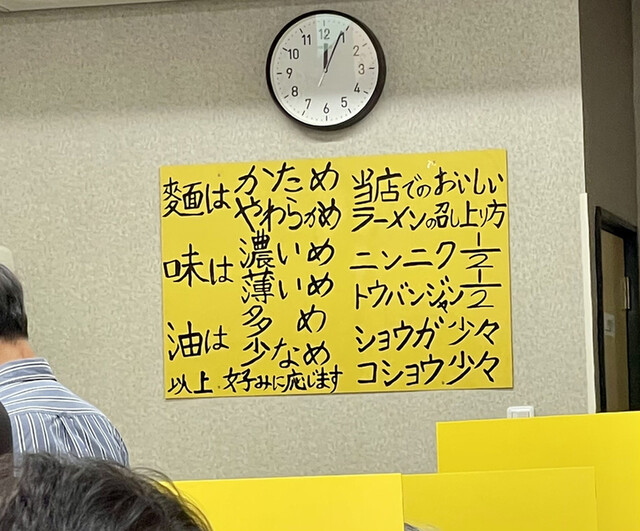 12
1
2
3
4
5
6
7
8
9
10
11
麺は かため
やわらかめ
味は 濃いめ
薄いめ
油は 多め
少なめ
以上 好みに応じます
当店でのおいしい
ラーメンの召し上り方
ニンニク 1/2
トウバンジャン 1/2
ショウガ 少々
コショウ 少々